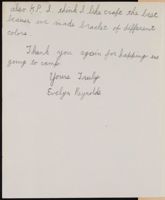 also G.P. I think I like craft the best
because we made braclet of different
colors.
Thank you again for helping us
going to camp
Yours Truly
Evelyn Reynolds